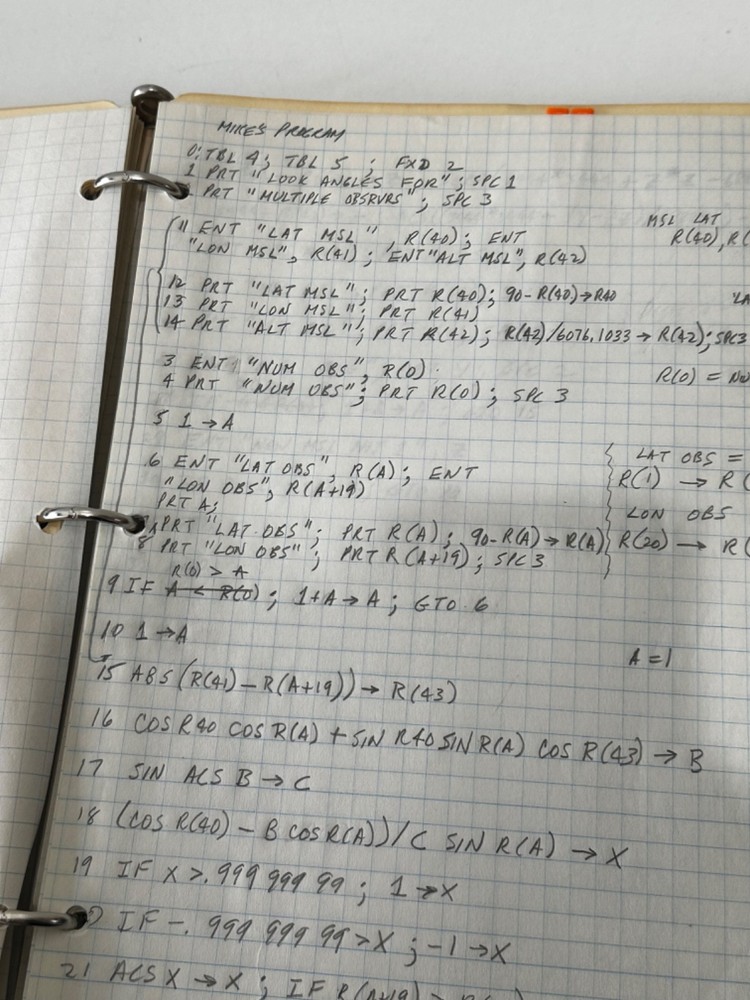 MIKE'S PROGRAM
0; TBL 4; TBL 5 ; FXD 2
1 PRT "LOOK ANGLES FOR"; SPC 1
PRT "MULTIPLE OBSRVRS"; SPC 3
MSL LAT
R(40), R(
11 ENT "LAT MSL", R(40); ENT
"LON MSL", R(41); ENT "ALT MSL", R(42)
12 PRT "LAT MSL"; PRT R(40); 90-R(40)→R40
13 PRT "LON MSL"; PRT R(41)
14 PRT "ALT MSL"; PRT R(42); R(42)/6076.1033 → R(42); SPC3
3 ENT "NUM OBS", R(0)
4 PRT "NUM OBS"; PRT R(0); SPC 3
R(0) = NU
5 1 → A
6 ENT "LAT OBS", R(A); ENT
"LON OBS", R(A+19)
PRT A;
PRT "LAT OBS"; PRT R(A); 90-R(A)→R(A)
8 PRT "LON OBS"; PRT R(A+19); SPC 3
LAT OBS =
R(1) → R(
LON OBS
R(20) → R(
R(0) > A
9 IF A < R(0); 1+A→A; GTO 6
10 1 →A
A = 1
15 ABS (R(41) - R(A+19)) → R(43)
16 COS R40 COS R(A) + SIN R40 SIN R(A) COS R(43) → B
17 SIN ACS B → C
18 (COS R(40) - B COS R(A))/C SIN R(A) → X
19 IF X >.999 999 99 ; 1 →X
IF -.999 999 99 > X ; -1 → X
21 ACS X → X ; IF R(A+19) >